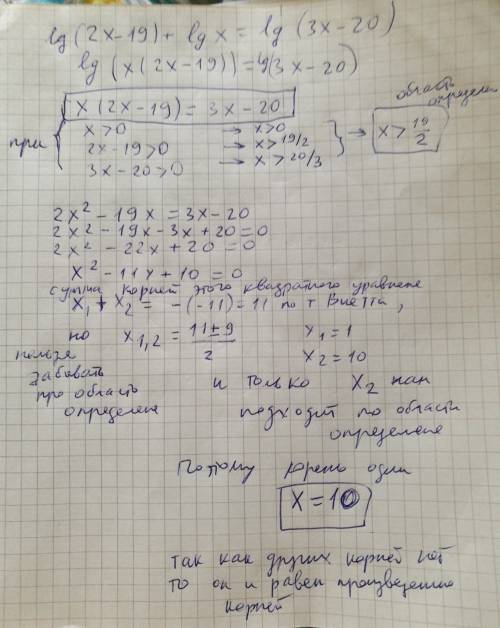 lg(2x-19)+lg x = lg(3x-20)
lg(x(2x-19))=lg(3x-20)
x(2x-19)=3x-20
область
определен
при
x>0 → x>0
2x-19>0 → x>19/2
3x-20>0 → x>20/3
→ x>19/2
2x²-19x=3x-20
2x²-19x-3x+20=0
2x²-22x+20=0
x²-11x+10=0
сумма корней этого квадратного уравнения
x₁+x₂=-(-11)=11 по т Виетта,
но x₁,₂=(11±9)/2 x₁=1
x₂=10
нельзя
забывать
про область
определене
и только x₂ нам
подходит по области
определене
Поэтому корень один
x=10
так как других корней нет
то он и равен произведению
корней